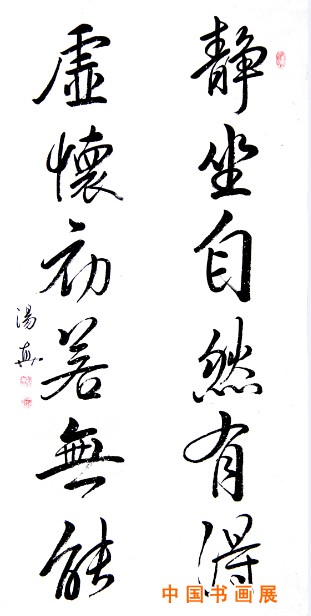 静坐自然有得
虚懷初若無能
湯真
中国书画展